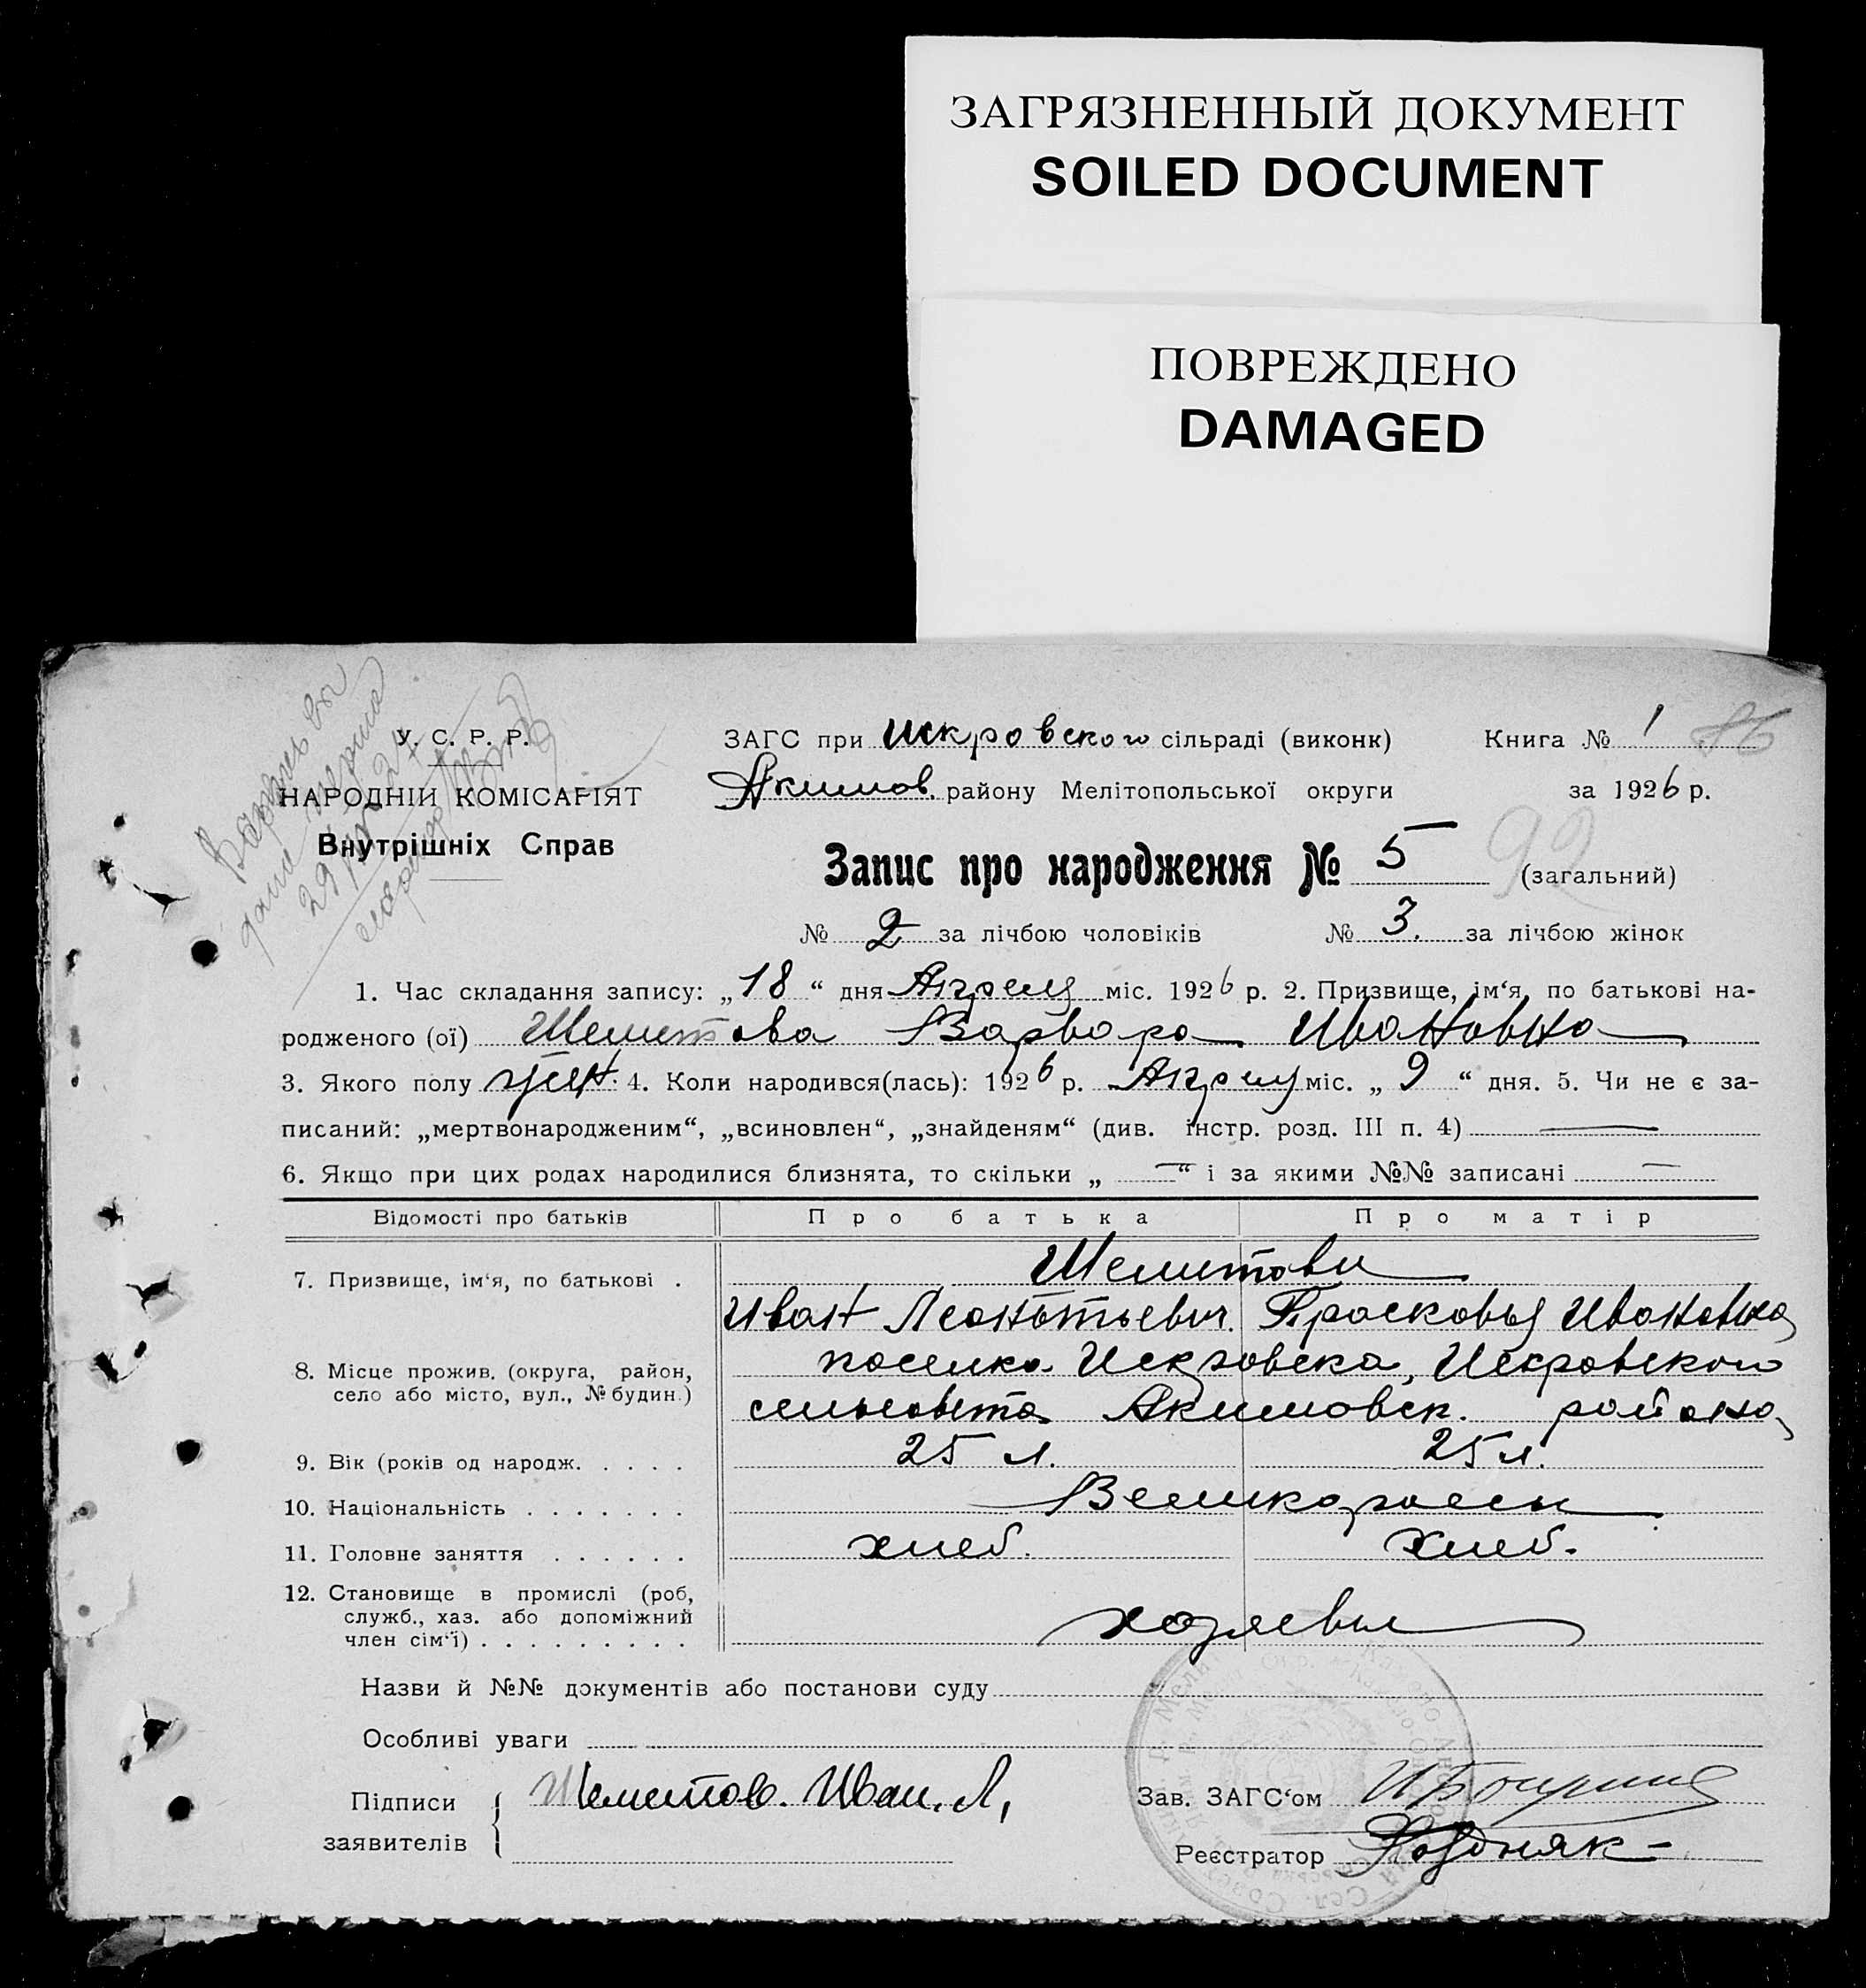 ЗАГРЯЗНЕННЫЙ ДОКУМЕНТ
SOILED DOCUMENT
ПОВРЕЖДЕНО
DAMAGED
У. С. Р. Р.
НАРОДНІЙ КОМІСАРІЯТ
Внутрішніх Справ
ЗАГС при Искровского сільраді (виконк) Книга № 1 86
Акимов. району Мелітопольської округи за 1926 р.
Запис про народження № 5 (загальний) 92
№ 2 за лічбою чоловіків № 3. за лічбою жінок
1. Час складання запису: „18“ дня Апреля міс. 1926 р. 2. Призвище, ім‘я, по батькові на-
родженого (ої) Шеметова Варвара Ивановна
3. Якого полу жен. 4. Коли народився(лась): 1926 р. Апреля міс. „9“ дня. 5. Чи не є за-
писаний: „мертвонародженим“, „всиновлен“, „знайденям“ (див. інстр. розд. III п. 4) —
6. Якщо при цих родах народилися близнята, то скільки „—“ і за якими №№ записані —
Відомості про батьків Про батька Про матір
7. Призвище, ім‘я, по батькові . Шеметовы
Иван Леонтьевич. Прасковья Ивановна
8. Місце прожив. (округа, район, село або місто, вул., № будин.) поселка Искровска, Искровского
сельсовета Акимовск. района
9. Вік (років од народж. . . . . 25 л. 25 л.
10. Національність . . . . . . . Великороссы
11. Головне заняття . . . . . . хлеб. хлеб.
12. Становище в промислі (роб, служб., хаз. або допоміжний член сім‘ї) . . . . . . . . . хозяевы
Назви й №№ документів або постанови суду
Особливі уваги
Підписи заявителів { Шеметов. Иван. Л,
Зав. ЗАГС‘ом
Реєстратор